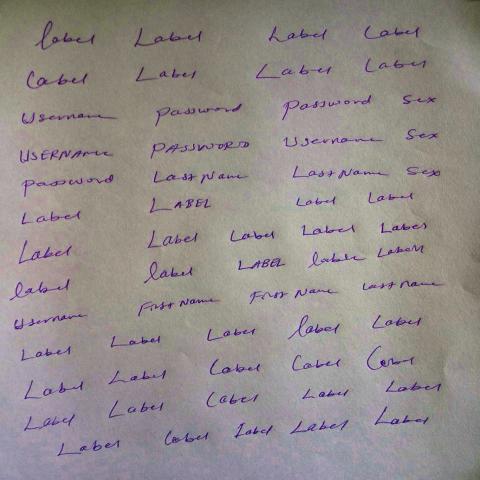 label Label Label Label
Label Label Label Label
Username password password Sex
USERNAME PASSWORD Username Sex
password Last Name Last Name Sex
Label LABEL Label Label
Label Label Label Label Label
label label LABEL lable Labell
Username First Name First Name Last name
Label Label Label label Label
Label Label Label Label Label
Label Label Label Label Label
Label Label Label Label Label